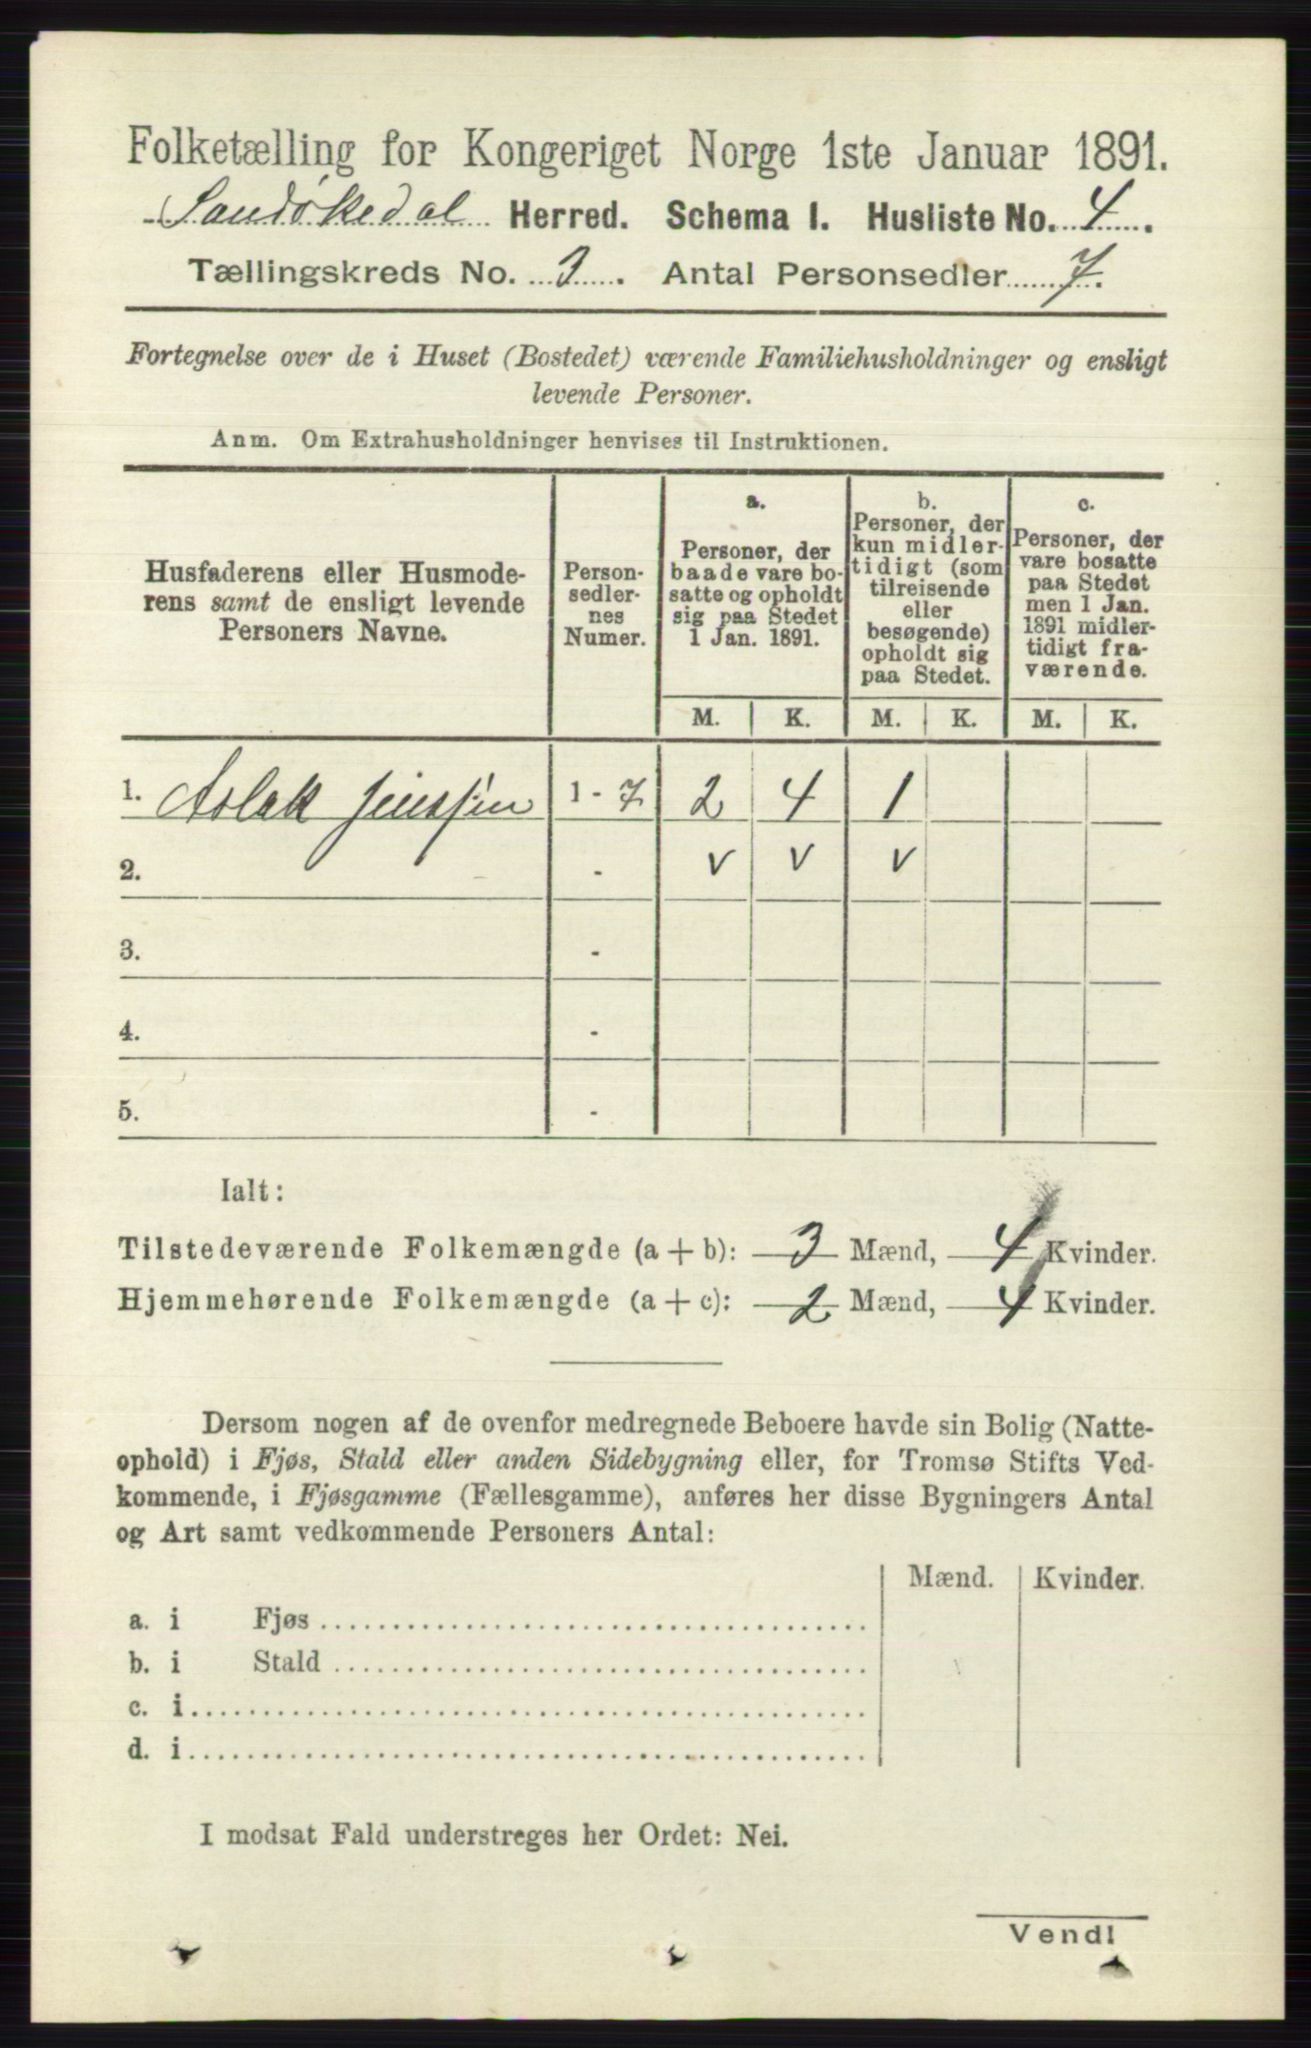 Folketælling for Kongeriget Norge 1ste Januar 1891.
Sandøkedal Herred. Schema I. Husliste No. 4.
Tællingskreds No. 3. Antal Personsedler 7.
Fortegnelse over de i Huset (Bostedet) værende Familiehusholdninger og ensligt
levende Personer.
Anm. Om Extrahusholdninger henvises til Instruktionen.
Husfaderens eller Husmode-
rens samt de ensligt levende
Personers Navne.
Person-
sedler-
nes
Numer.
a.
Personer, der
baade vare bo-
satte og opholdt
sig paa Stedet
1 Jan. 1891.
b.
Personer, der
kun midler-
tidigt (som
tilreisende
eller
besøgende)
opholdt sig
paa Stedet.
c.
Personer, der
vare bosatte
paa Stedet
men 1 Jan.
1891 midler-
tidigt fra-
værende.
M. K. M. K. M. K.
1. Aslak Jenssen 1 - 7 2 4 1
2. - v v v
3. -
4. -
5. -
Ialt:
Tilstedeværende Folkemængde (a + b): 3 Mænd, 4 Kvinder.
Hjemmehørende Folkemængde (a + c): 2 Mænd, 4 Kvinder.
Dersom nogen af de ovenfor medregnede Beboere havde sin Bolig (Natte-
ophold) i Fjøs, Stald eller anden Sidebygning eller, for Tromsø Stifts Ved-
kommende, i Fjøsgamme (Fællesgamme), anføres her disse Bygningers Antal
og Art samt vedkommende Personers Antal:
Mænd. Kvinder.
a. i Fjøs
b. i Stald
c. i
d. i
I modsat Fald understreges her Ordet: Nei.
Vend!